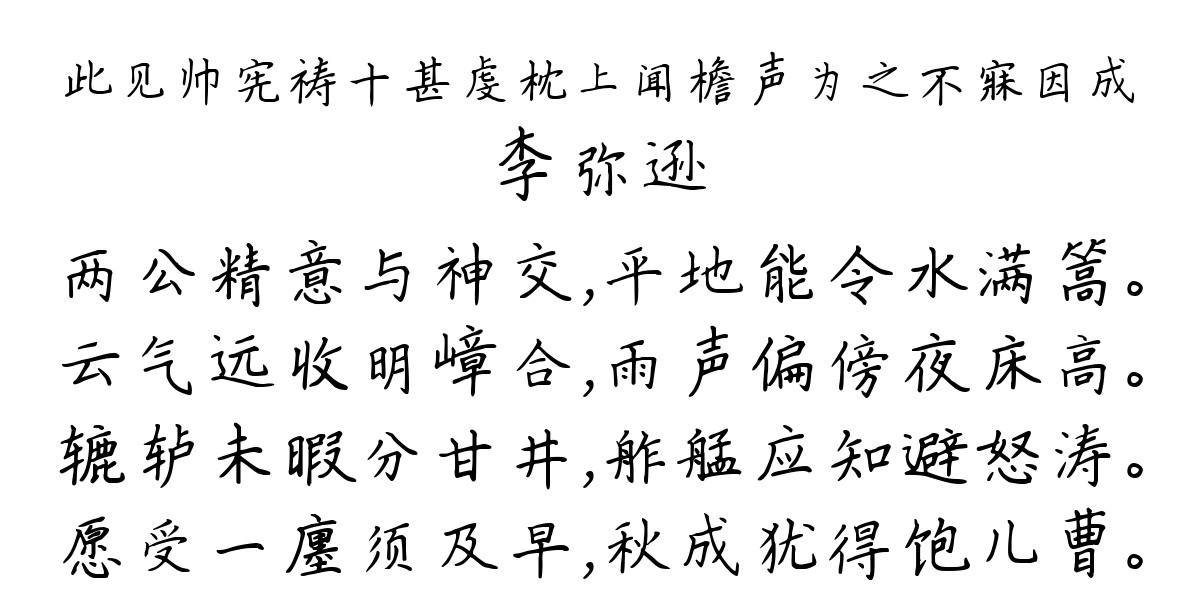 此见帅宪祷十甚虔枕上闻檐声为之不寐因成
李弥逊
两公精意与神交,平地能令水满篙。
云气远收明嶂合,雨声偏傍夜床高。
辘轳未暇分甘井,舴艋应知避怒涛。
愿受一廛须及早,秋成犹得饱儿曹。